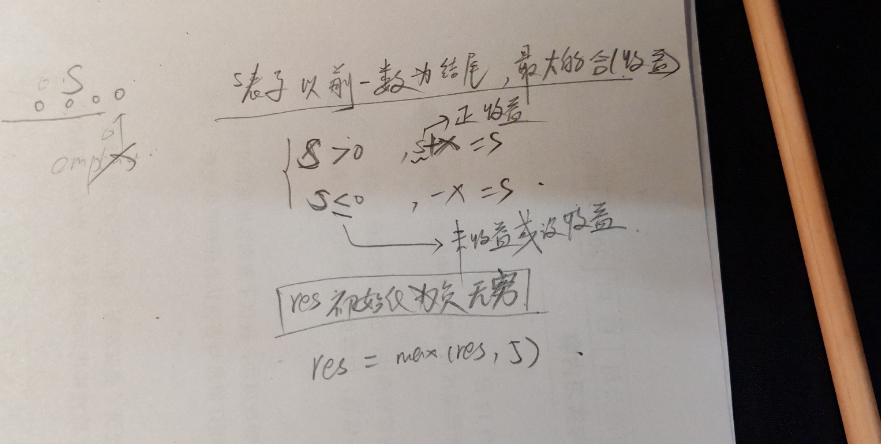 S
S表示以前一数为结尾,最大的合(收益)
→正收益
S>0 , S+x =S
S≤0 , -x =S .
→ 未收益或没收益
res初始化为负无穷
res = max(res, S) .